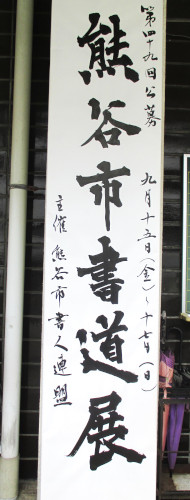 第四十九回公募
熊谷市書道展
九月十五日(金)~十七日(日)
主催 熊谷市書人連盟